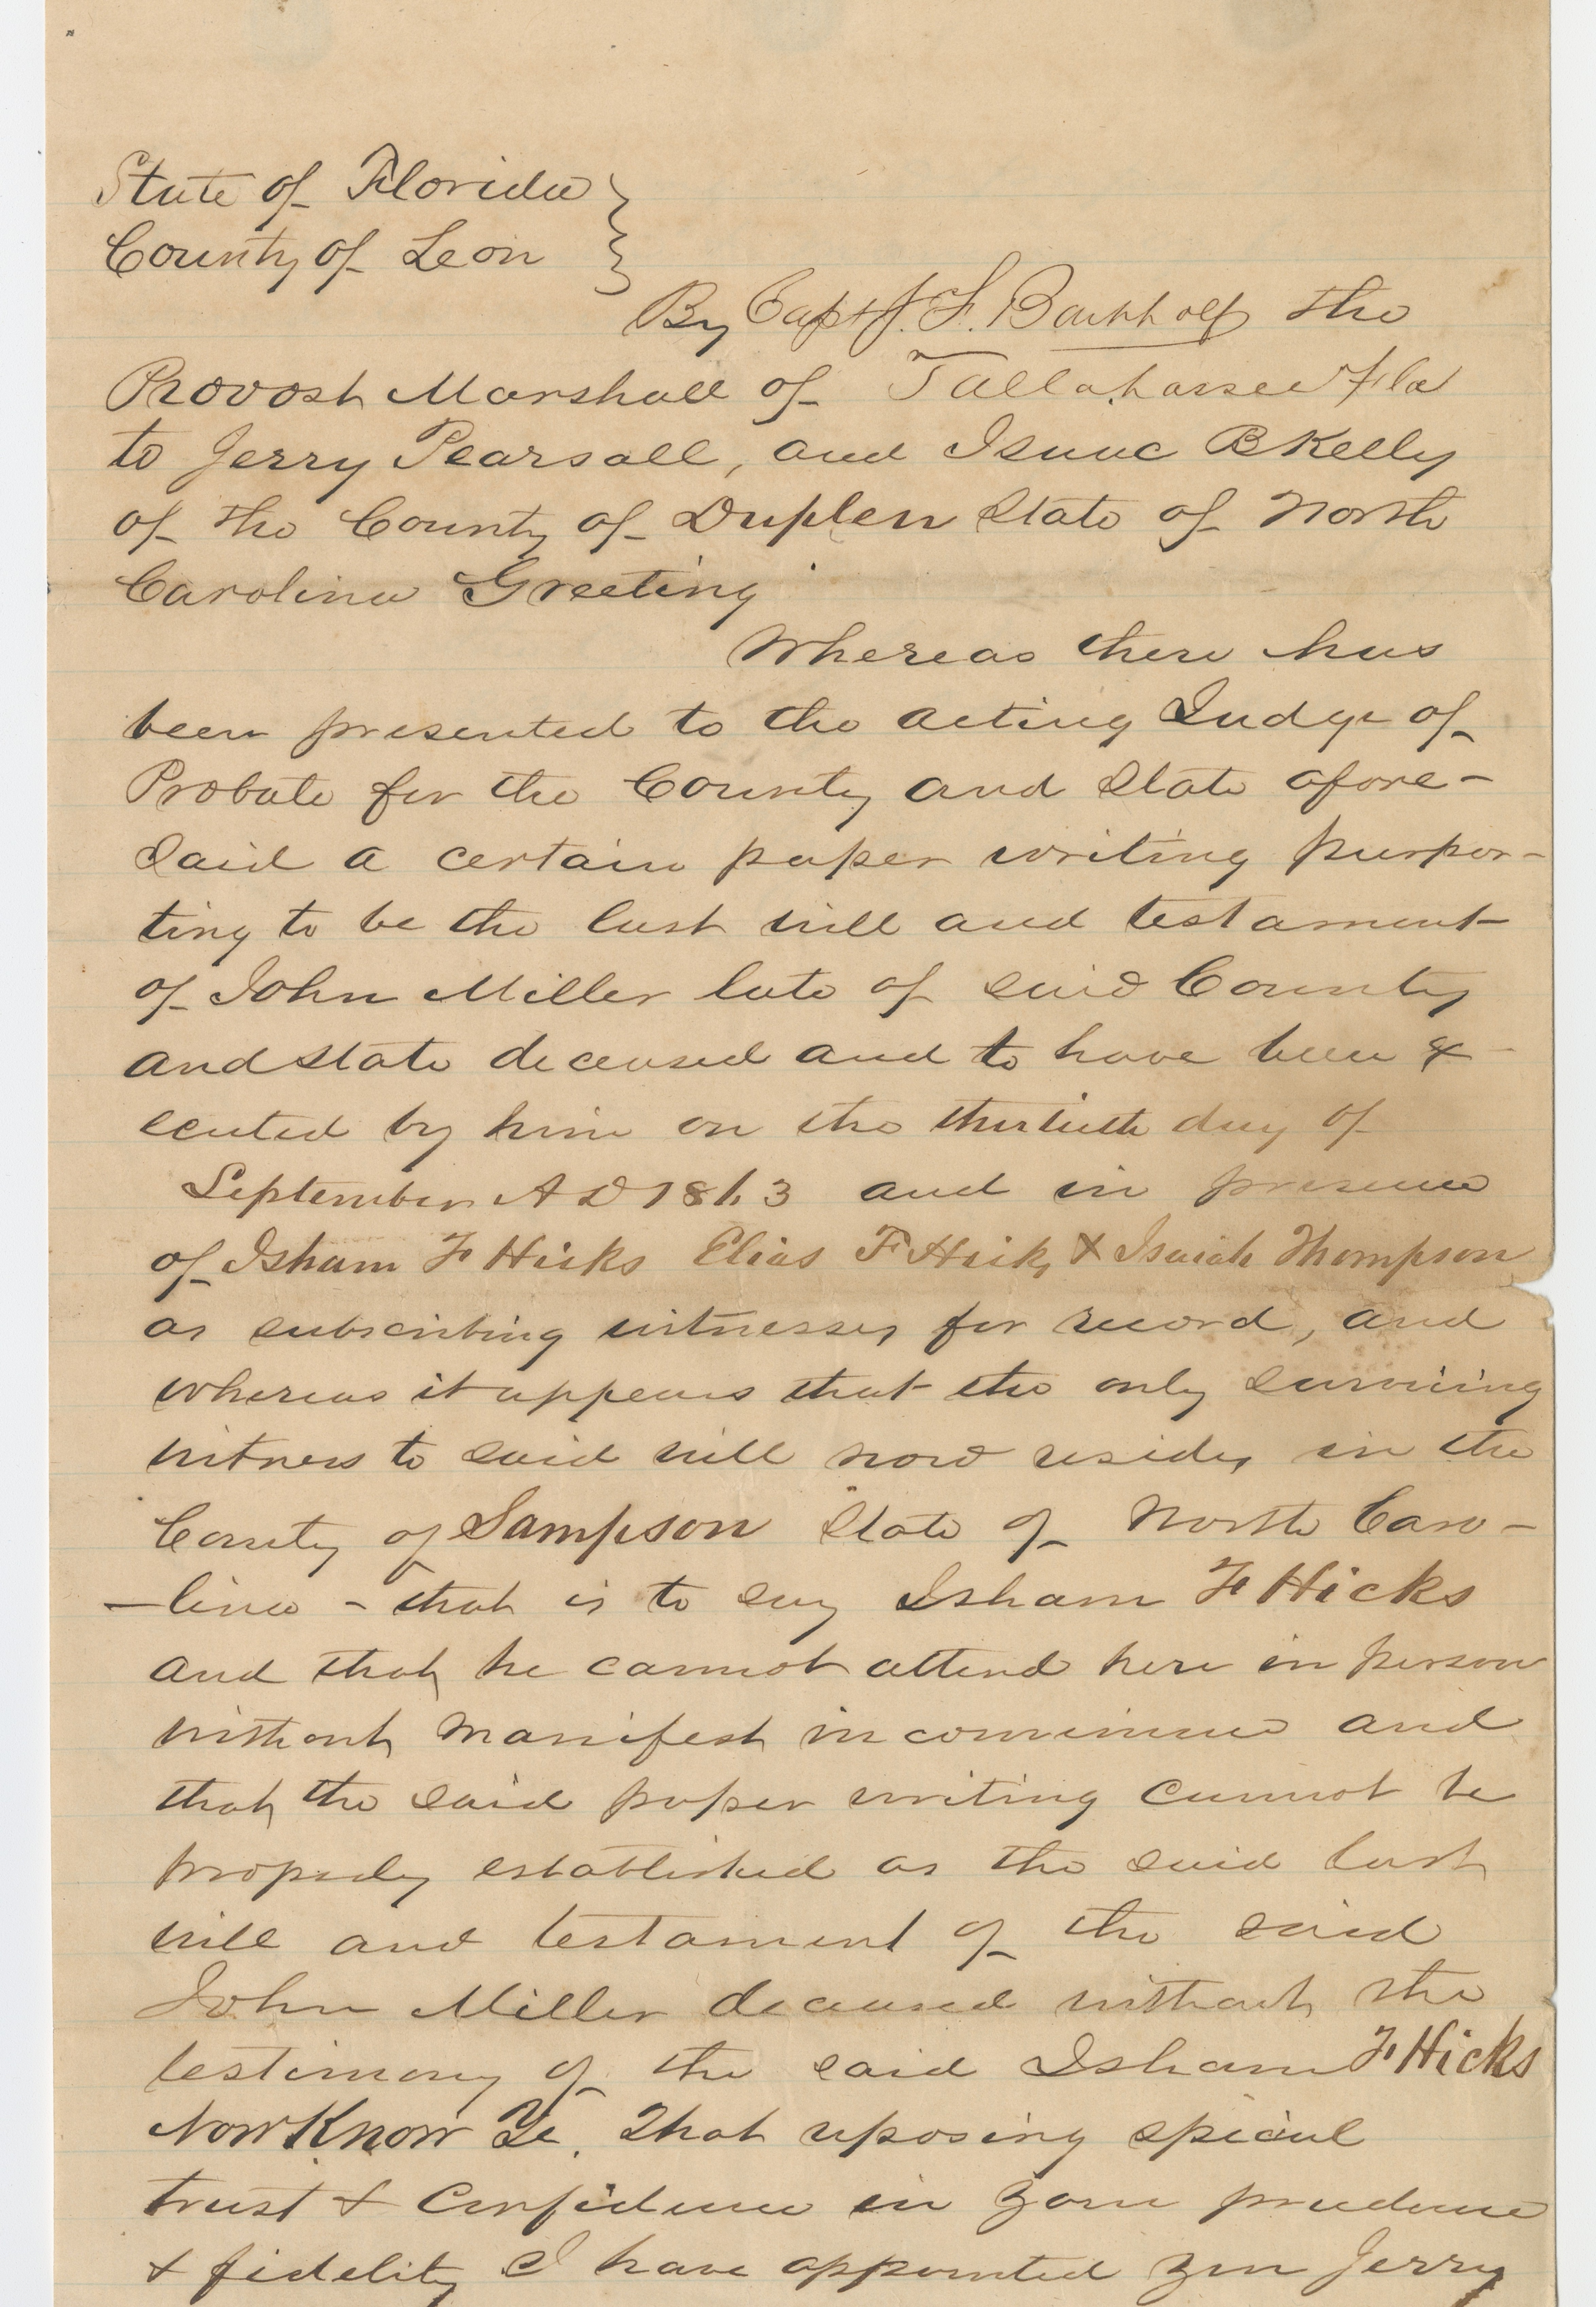 State of Florida }
County of Leon }
By Capt J. F. the
Provost Marshall of Tallahassee Fla
to Jerry Pearsall, and Isaac B Kelly
of the County of Duplen State of North
Carolina Greeting
Whereas there has
been presented to the acting Judge of
Probate for the County and State afore-
said a certain paper writing purpor-
ting to be the last will and testament
of John Miller late of said County
and State deceased and to have been ex-
ecuted by him on the thirtieth day of
September A D 1863 and in presence
of Isham F Hicks Elias F Hicks & Isaiah Thompson
as subscribing witnesses for record, and
whereas it appears that the only surviving
witness to said will now resides in the
County of Sampson State of North Caro-
-lina - that is to say Isham F Hicks
and that he cannot attend here in person
without manifest inconvenience and
that the said paper writing cannot be
properly established as the said last
will and testament of the said
John Miller deceased without the
testimony of the said Isham F Hicks
Now Know Ye. That reposing special
trust & confidence in your prudence
& fidelity I have appointed you Jerry